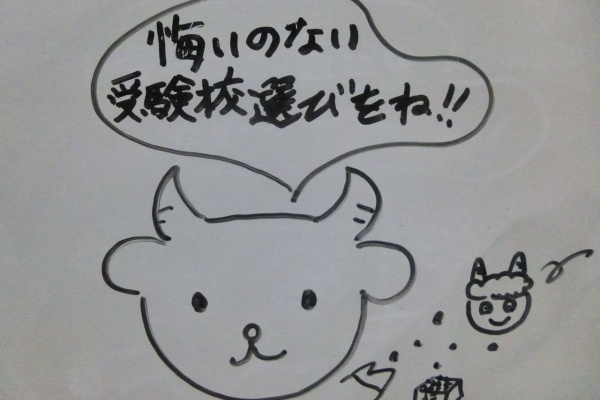 悔いのない
受験校選びをね!!